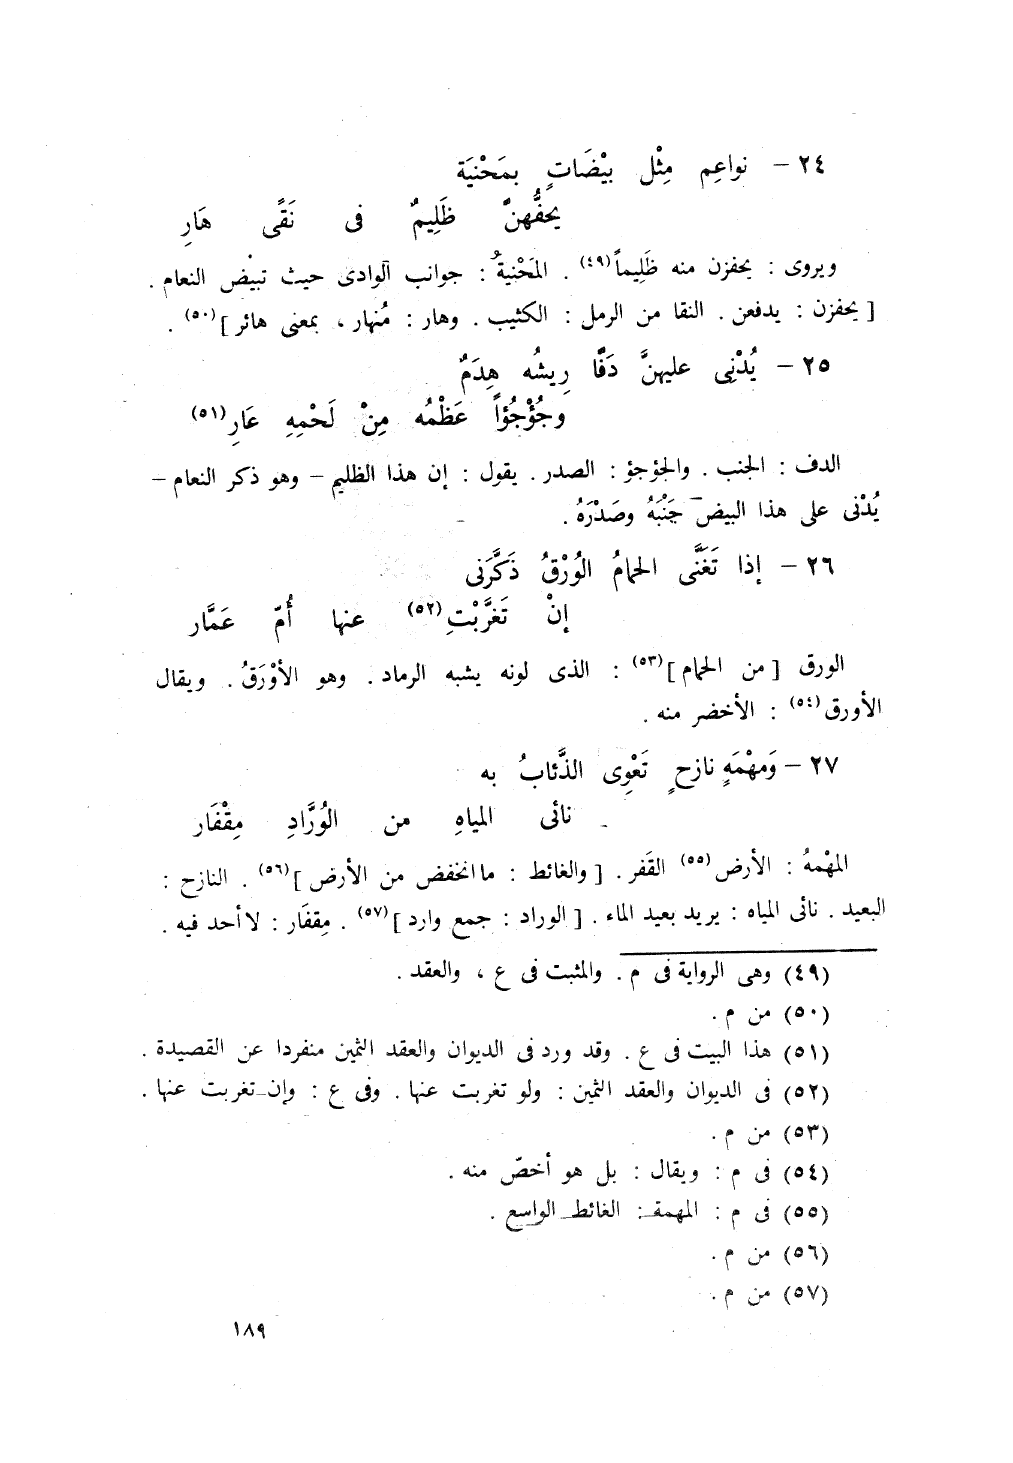 ٢٤ – نواعِم مِثْل بيْضَاتٍ بمَحْنيَة
يحفُّهنَّ ظَلِيمٌ فى نَقًى هَارِ
ويروى : يحفزن منه ظَلِيماً(٤٩) . المَحْنيةُ : جوانب الوادى حيث تبيْض النعام .
[ يحفزن : يدفعن . النقا من الرمل : الكثيب . وهار : مُنهار ، بمعنى هائر ](٥٠) .
٢٥ – يُدْنِى عليهنَّ دَفًّا رِيشُه هِدَمٌ
وجُؤْجُؤاً عَظْمُه مِنْ لَحْمِهِ عَارِ(٥١)
الدف : الجنب . والجؤجؤ : الصدر . يقول : إن هذا الظليم – وهو ذكر النعام –
يُدْنى على هذا البيض جَنْبَهُ وصَدْرَهُ .
٢٦ – إذا تَغَنَّى الحمامُ الوُرْقُ ذَكَّرَنى
إنْ تَغرَّبْتِ(٥٢) عنها أُمّ عَمَّار
الورق [ من الحمام ](٥٣) : الذى لونه يشبه الرماد . وهو الأوْرَقُ . ويقال
الأورق(٥٤) : الأخضر منه .
٢٧ – وَمهْمَهٍ نازحٍ تَعْوِى الذَّئابُ به
نائى المياهِ من الوُرَّادِ مِقْفَار
المهْمهُ : الأرض(٥٥) القَفر . [ والغائط : ما انخفض من الأرض ](٥٦) . النازح :
البعيد . نائى المياه : يريد بعيد الماء . [ الوراد : جمع وارد ](٥٧) . مِقفَار : لا أحد فيه .
(٤٩) وهى الرواية فى م . والمثبت فى ع ، والعقد .
(٥٠) من م .
(٥١) هذا البيت فى ع . وقد ورد فى الديوان والعقد الثمين منفردا عن القصيدة .
(٥٢) فى الديوان والعقد الثمين : ولو تغربت عنها . وفى ع : وإن تغربت عنها .
(٥٣) من م .
(٥٤) فى م : ويقال : بل هو أخصّ منه .
(٥٥) فى م : المهمة : الغائط الواسع .
(٥٦) من م .
(٥٧) من م .
١٨٩